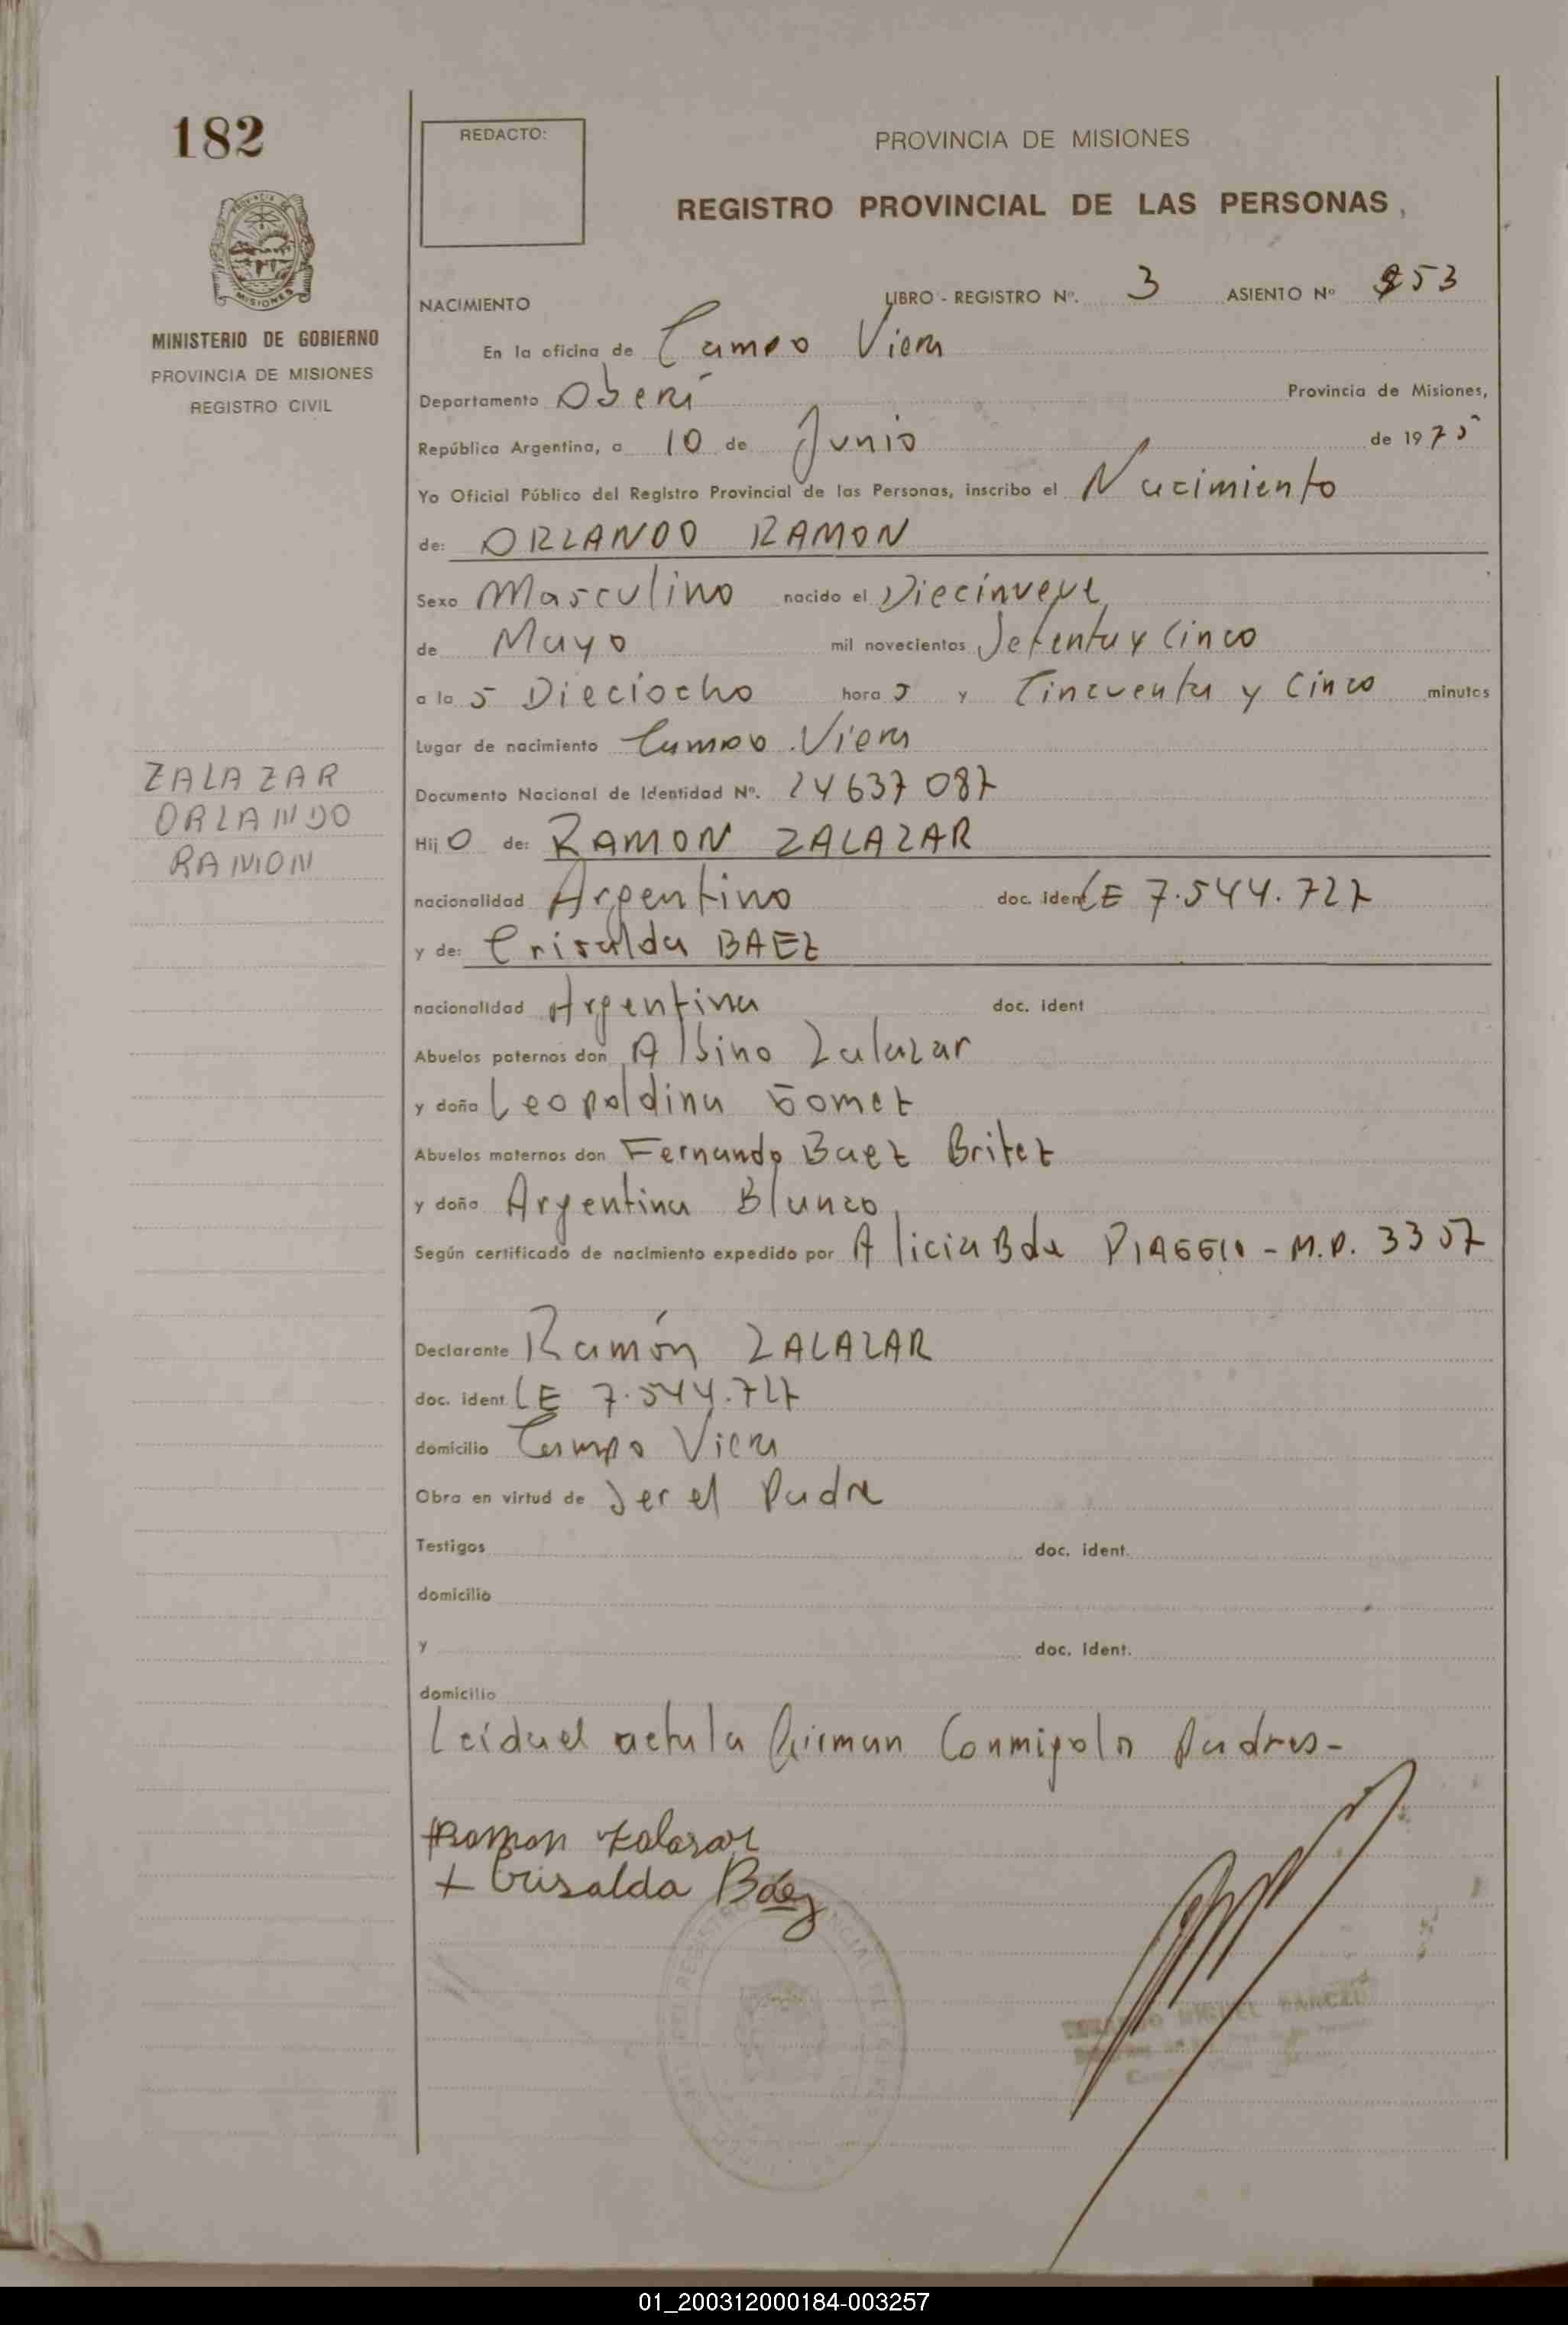 182
REDACTO:
PROVINCIA DE MISIONES
REGISTRO PROVINCIAL DE LAS PERSONAS
MINISTERIO DE GOBIERNO
PROVINCIA DE MISIONES
REGISTRO CIVIL
NACIMIENTO LIBRO - REGISTRO Nº. 3 ASIENTO Nº 953
En la oficina de Campo Viera
Departamento Oberá Provincia de Misiones,
República Argentina, a 10 de Junio de 1975
Yo Oficial Público del Registro Provincial de las Personas, inscribo el Nacimiento
de: ORLANDO RAMON
Sexo Masculino nacido el Diecinueve
de Mayo mil novecientos Setenta y Cinco
a la s Dieciocho hora s y Cincuenta y Cinco minutos
Lugar de nacimiento Campo Viera
Documento Nacional de Identidad Nº. 24637087
ZALAZAR
ORLANDO
RAMON
Hij o de: RAMON ZALAZAR
nacionalidad Argentino doc. ident LE 7.544.727
y de: Crisalda BAEZ
nacionalidad Argentina doc. ident
Abuelos paternos don Albino Zalazar
y doña Leopoldina Gomez
Abuelos maternos don Fernando Baez Britez
y doña Argentina Blanco
Según certificado de nacimiento expedido por Alicia B de PIAGGIO - M.P. 3357
Declarante Ramón ZALAZAR
doc. ident LE 7.544.727
domicilio Campo Viera
Obra en virtud de Ser el Padre
Testigos doc. ident.
domicilio
y doc. ident.
domicilio
Leída el acta la firman Conmigo ls Padres-
Ramon Zalasar
+ Crisalda Báez
01_200312000184-003257